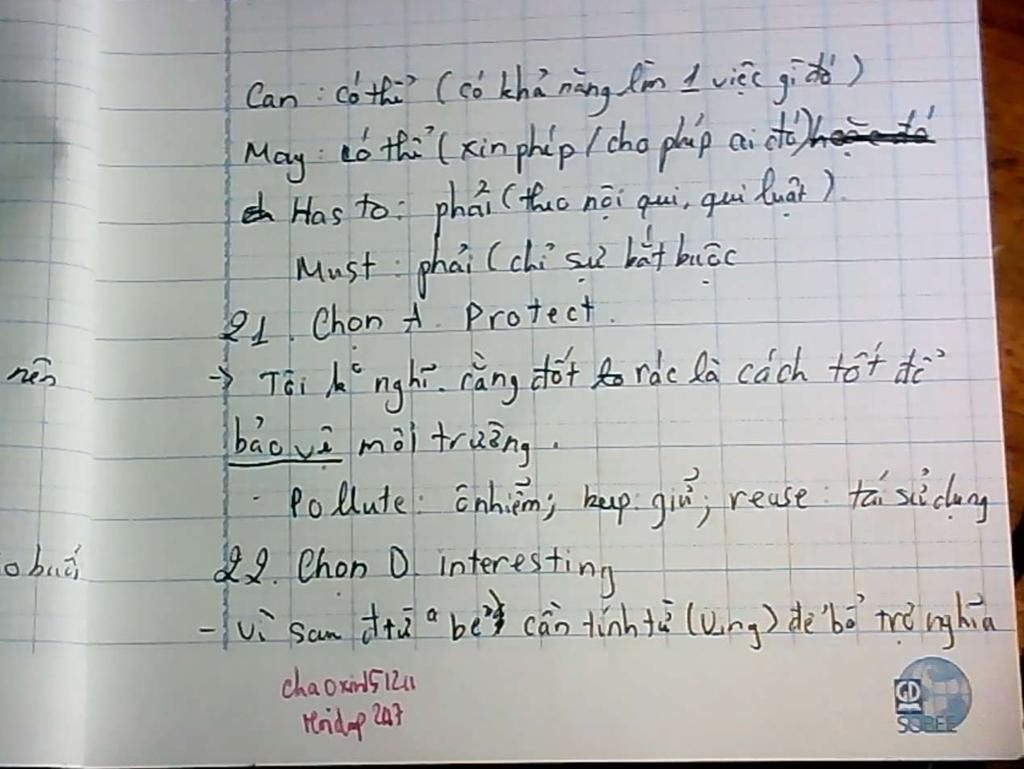 Can : có thể (có khả năng làm 1 việc gì đó)
May : có thể (xin phép / cho phép ai đó) hoặc đó
Has to : phải (theo nội qui, qui luật).
Must : phải (chỉ sự bắt buộc
21. Chọn A. Protect.
nên
→ Tôi k° nghĩ rằng đốt rác là cách tốt để
bảo vệ môi trường.
- Pollute : ô nhiễm; keep : giữ; reuse : tái sử dụng
o buổi
22. Chọn D interesting
- Vì sau đtừ "be" cần tính từ (V.ing) để bổ trợ nghĩa
chaoxin51211
Hoidap 247
GD
SOBEE